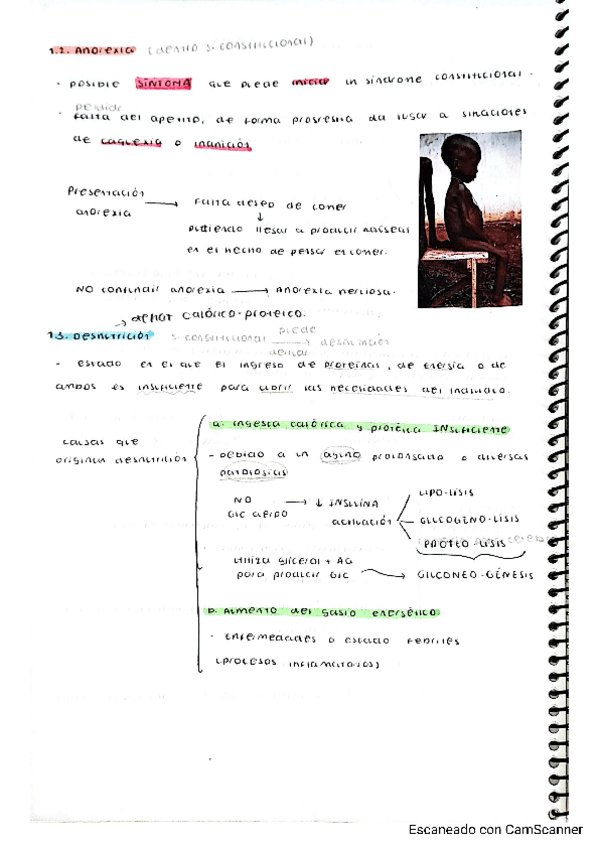 1.2. Anorexia (dentro s. constitucional)
- posible SÍNTOMA que puede iniciar un síndrome constitucional.
- Falta del apetito, de forma progresiva da lugar a situaciones
de caquexia o inanición
Presentación anorexia → Falta deseo de comer
↓
pudiendo llegar a producir náuseas
en el hecho de pensar en comer.
NO confundir anorexia → Anorexia nerviosa.
→ calórico-proteico.
1.3. Desnutrición s. constitucional puede → desnutrición
- estado en el que el ingreso de proteínas, de energía o de
ambos es insuficiente para cubrir las necesidades del individuo.
causas que
originan desnutrición
a. Ingesta calórica y protéica INSUFICIENTE
- Debido a un ayuno prolongado o diversas
patologías
NO → ↓ INSULINA
Glc cuerpo activación
LIPO-LISIS
GLUCOGENO-LISIS
PROTEO-LISIS
utiliza glicerol + AG
para producir Glc → GLUCONEO-GÉNESIS
b. Aumento del gasto energético
- Enfermedades o estado febriles
(procesos inflamatorios)
Escaneado con CamScanner